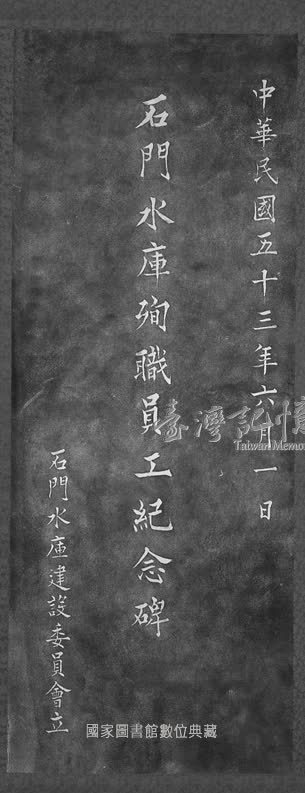 中華民國五十三年六月一日
石門水庫殉職員工紀念碑
石門水庫建設委員會立
臺灣記憶
Taiwan Memo
國家圖書館數位典藏